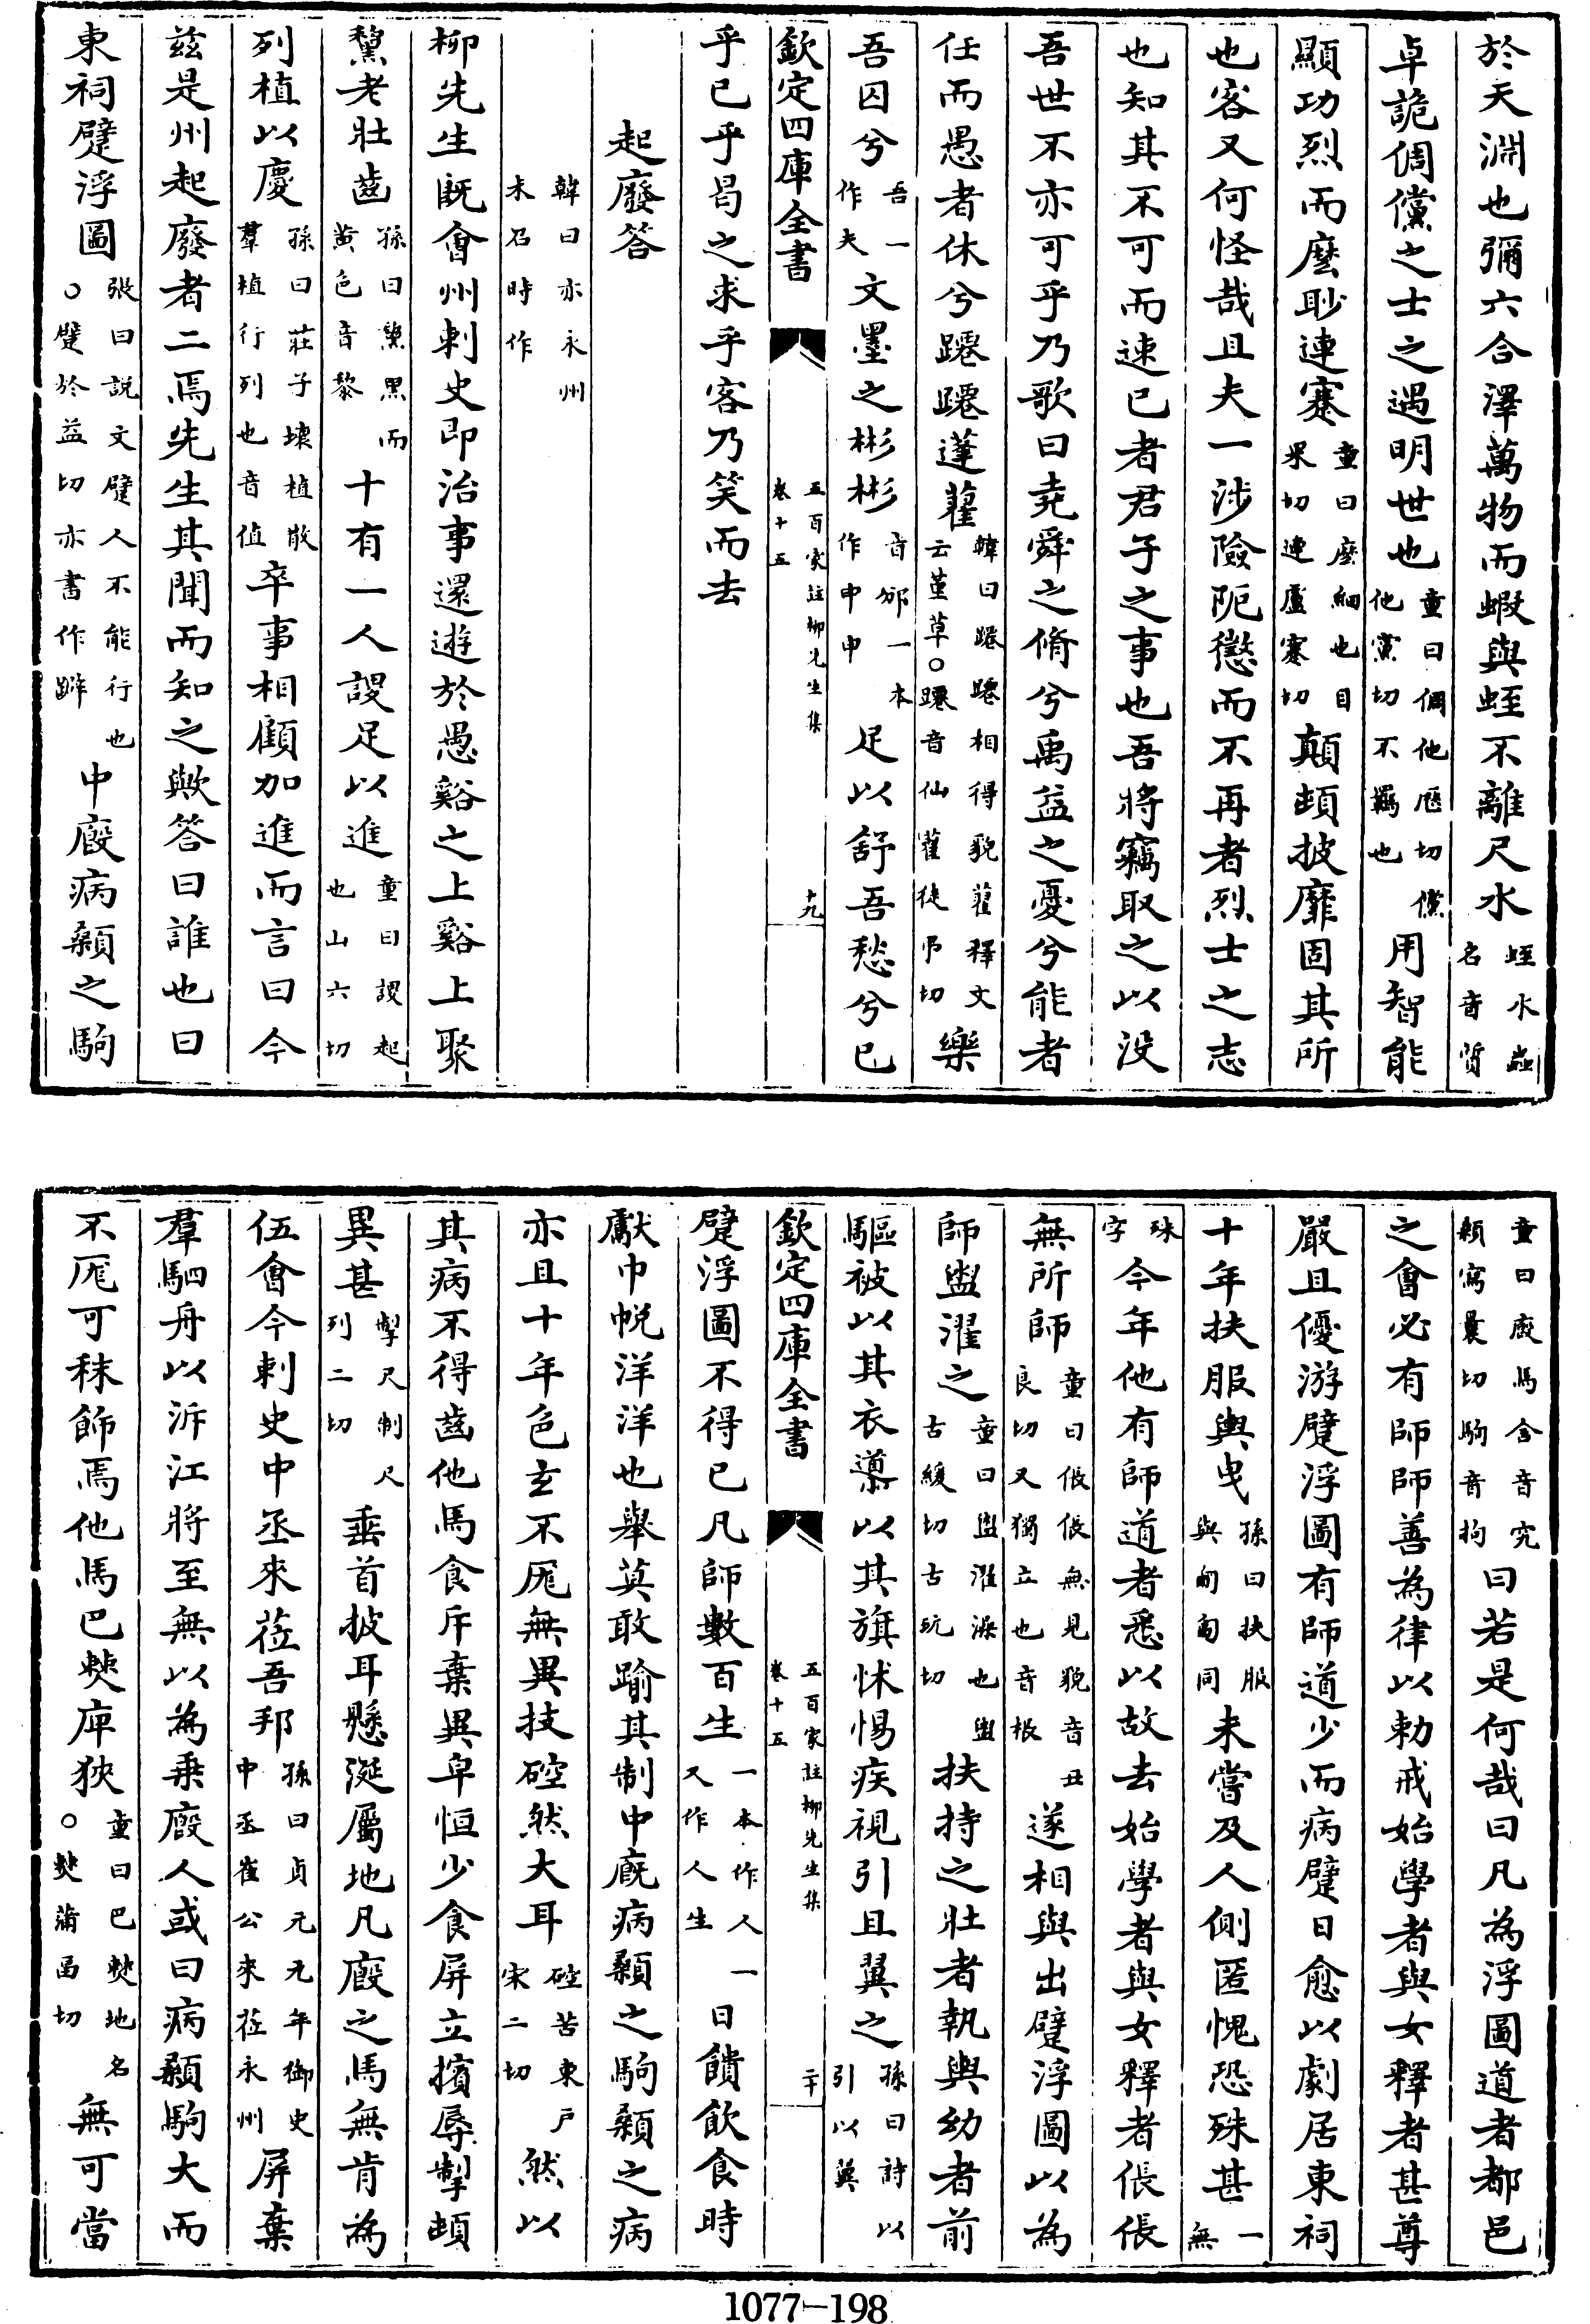 於天淵也彌六合澤萬物而蝦與蛭不離尺水蛭水蟲名音質
卓詭倜儻之士之遇明世也童曰倜他歷切儻他黨切不羈也用智能
顯功烈而麽眇連蹇童曰麽細也目果切連盧蹇切顛頓披靡固其所
也客又何怪哉且夫一涉險阨懲而不再者烈士之志
也知其不可而速已者君子之事也吾將竊取之以没
吾世不亦可乎乃歌曰堯舜之脩兮禹益之憂兮能者
任而愚者休兮躚躚蓬藋韓曰躚躚相得貌藋釋文云堇草○躚音仙藋徒弔切樂
吾囚兮吾一作夫文墨之彬彬音邠一本作申申足以舒吾愁兮已
欽定四庫全書 五百家註柳先生集 卷十五 十九
乎已乎曷之求乎客乃笑而去
起廢答
韓曰亦永州未召時作
柳先生既會州刺史即治事還遊於愚谿之上谿上聚
黧老壯齒孫曰黧黑而黄色音黎十有一人謖足以進童曰謖起也山六切
列植以慶孫曰莊子壞植散羣植行列也音值卒事相顧加進而言曰今
兹是州起廢者二焉先生其聞而知之歟答曰誰也曰
東祠躄浮圖張曰說文躄人不能行也○躄於益切亦書作躃中廄病顙之駒
童曰廄馬舍音究顙寫曩切駒音拘曰若是何哉曰凡為浮圖道者都邑
之會必有師師善為律以勅戒始學者與女釋者甚尊
嚴且優游躄浮圖有師道少而病躄日愈以劇居東祠
十年扶服輿曳孫曰扶服與匍匐同未嘗及人側匿愧恐殊甚一無
殊字今年他有師道者悉以故去始學者與女釋者倀倀
無所師童曰倀倀無見貌音丑良切又獨立也音棖遂相與出躄浮圖以為
師盥濯之童曰盥濯澡也盥古緩切古玩切扶持之壯者執輿幼者前
驅被以其衣導以其旗怵惕疾視引且翼之孫曰詩以引以翼
欽定四庫全書 五百家註柳先生集 卷十五 二十
躄浮圖不得已凡師數百生一本作人一又作人生日饋飲食時
獻巾帨洋洋也舉莫敢踰其制中廄病顙之駒顙之病
亦且十年色玄不厖無異技硿然大耳硿苦東户宋二切然以
其病不得齒他馬食斥棄異皁恒少食屏立擯辱掣頓
異甚掣尺制尺列二切垂首披耳懸涎屬地凡廄之馬無肯為
伍會今刺史中丞來莅吾邦孫曰貞元元年御史中丞崔公來莅永州屏棄
羣駟舟以泝江將至無以為乘廄人或曰病顙駒大而
不厖可秣飾焉他馬巴僰庳狹童曰巴僰地名○僰蒲㔽切無可當
1077-198